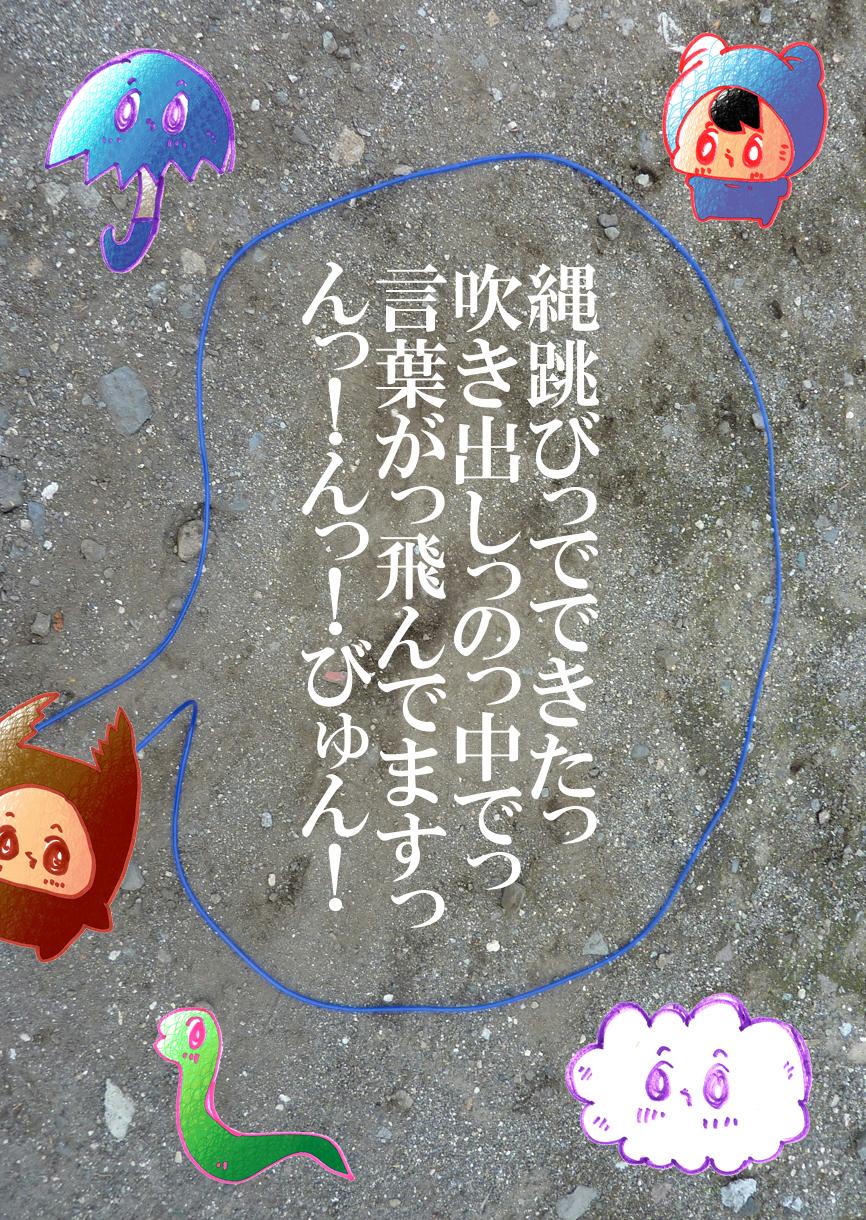 縄跳びっでできたっ
吹き出しっのっ中でっ
言葉がっ飛んでますっ
んっ！んっ！びゅん！